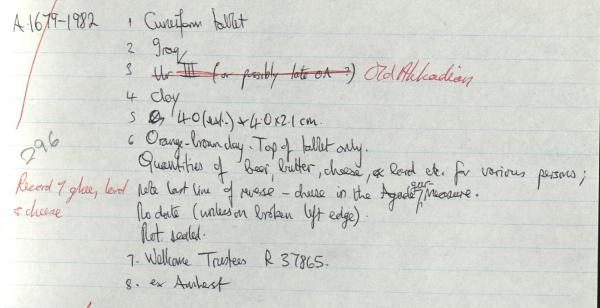 A.1679-1982 1 Cuneiform tablet
2 Iraq
3 Ur III (or possibly late OA ?) Old Akkadian
4 clay
5 4.0 (est.) x 4.0 x 2.1 cm.
296
6 Orange-brown clay. Top of tablet only.
Quantities of beer, butter, cheese, ox lard etc. for various persons;
Record of ghee, lard
& cheese
note last line of reverse - cheese in the Agade gur measure.
No date (unless on broken left edge).
Not sealed.
7. Wellcome Trustees R 37865.
8. ex Amherst